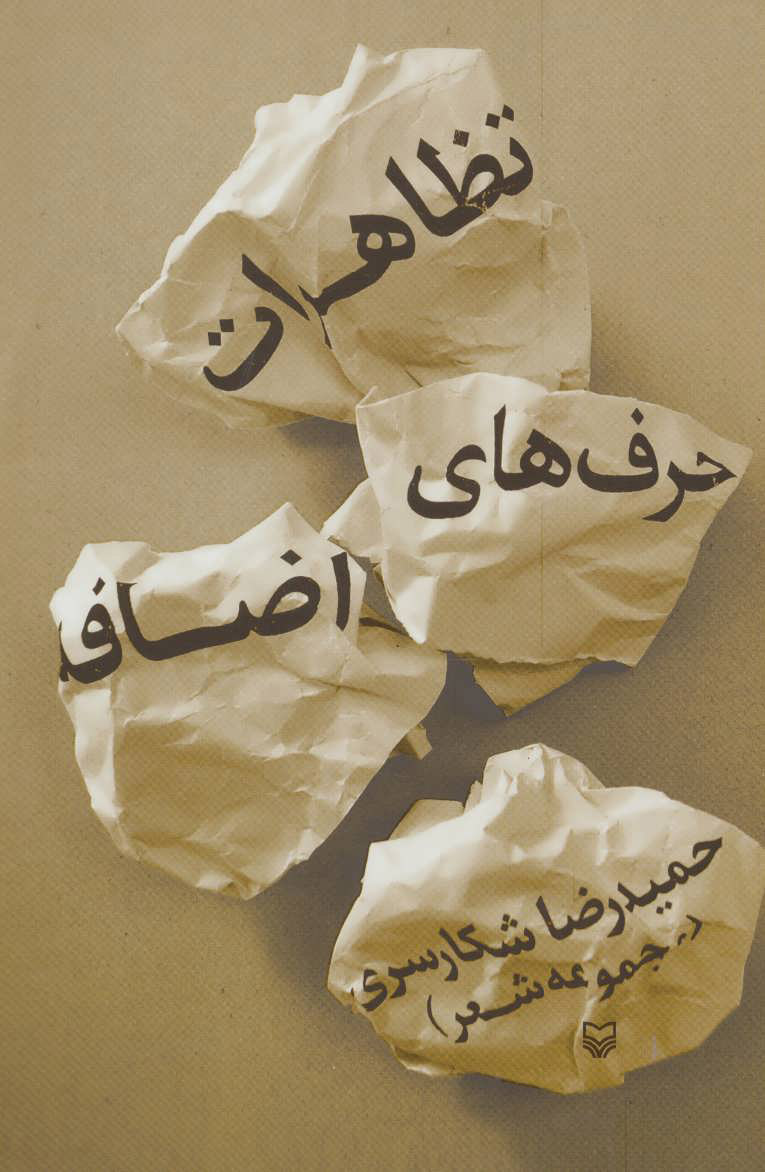 تظاهرات
حرف‌های
اضافه
حمیدرضا شکارسری
(مجموعه شعر)